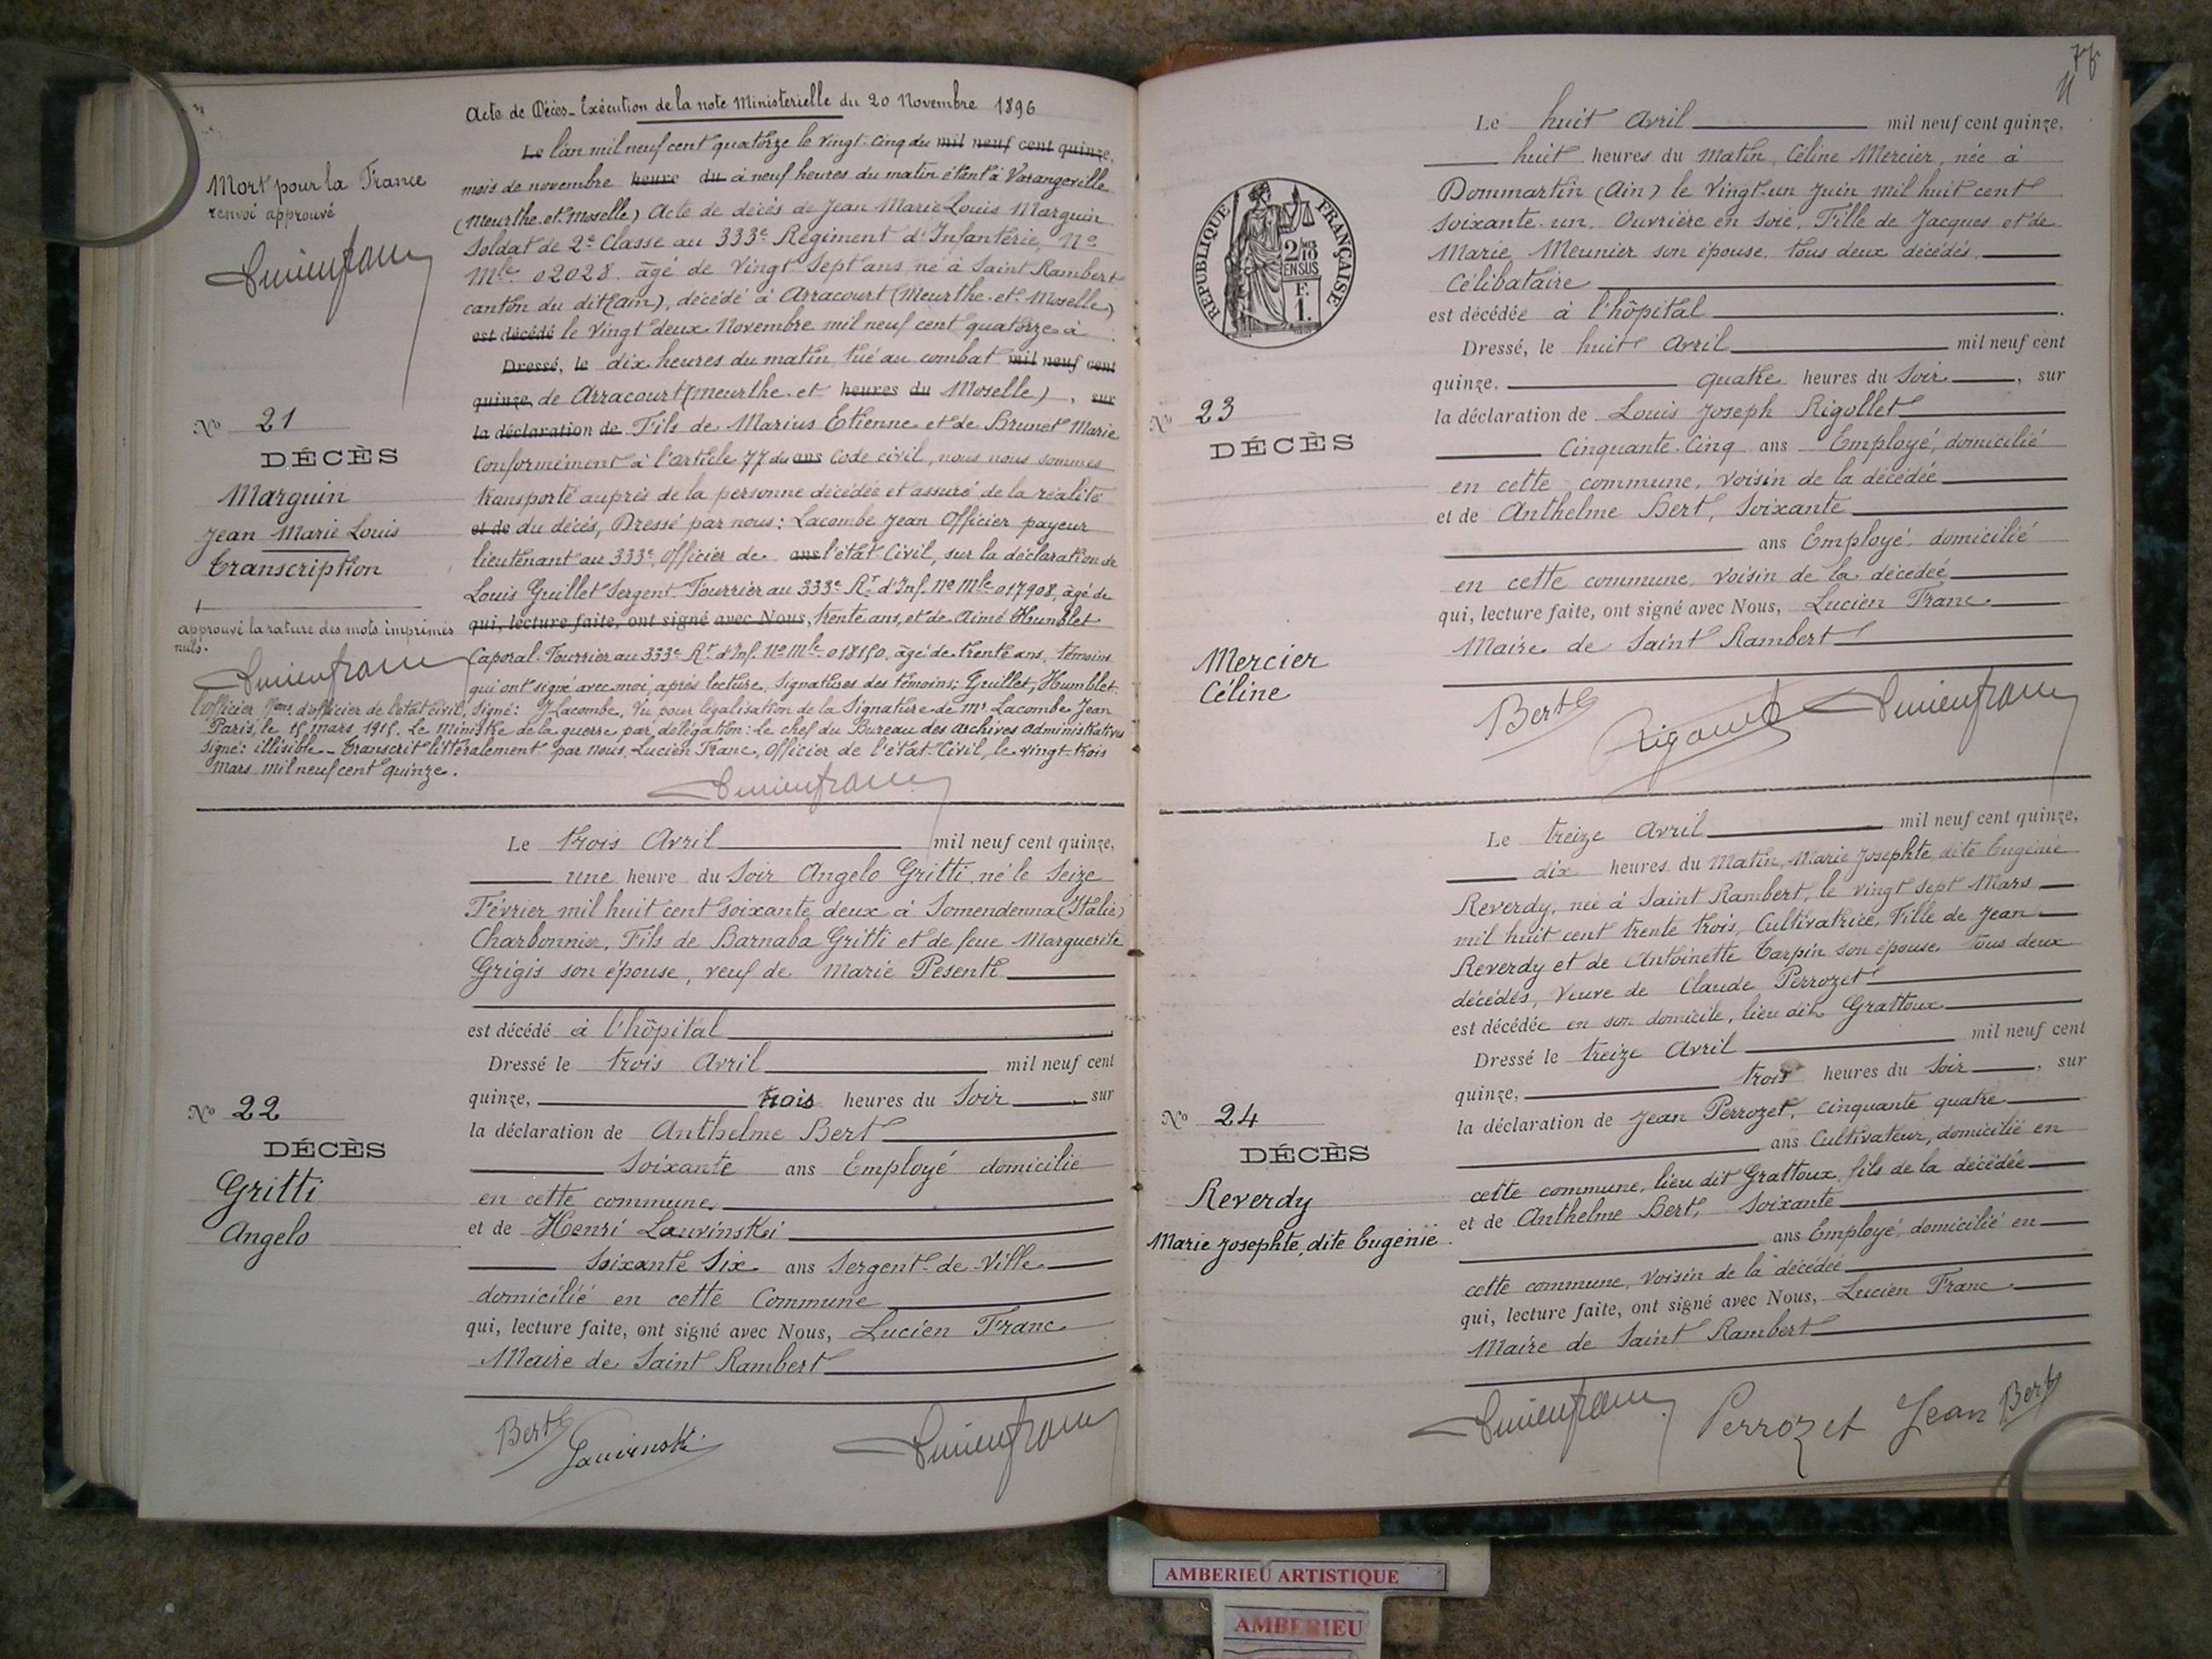 Acte de Décès - Exécution de la note Ministérielle du 20 Novembre 1896
Mort pour la France
renvoi approuvé
Lucien franc
Nº 21
DÉCÈS
Marguin
Jean Marie Louis
transcription
approuvé la rature des mots imprimés
nuls.
Lucien franc
Le l'an mil neuf cent quatorze le vingt-cinq du mil neuf cent quinze,
mois de novembre heure du à neuf heures du matin étant à Varangeville
(Meurthe-et-Moselle) Acte de décès de Jean Marie Louis Marguin
Soldat de 2e Classe au 333e Régiment d'Infanterie, No
Mle 02028 âgé de vingt sept ans né à Saint Rambert
canton du dit (Ain), décédé à Arracourt (Meurthe-et-Moselle)
est décédé le vingt deux Novembre mil neuf cent quatorze à
Dressé, le dix heures du matin, tué au combat mil neuf cent
quinze, de Arracourt (Meurthe-et heures du Moselle), sur
la déclaration de Fils de Marius Etienne et de Brunet Marie
Conformément à l'article 77 du ans Code civil, nous nous sommes
transporté auprès de la personne décédée et assuré de la réalité
et de du décès, Dressé par nous: Lacombe Jean Officier payeur
lieutenant au 333e, officier de ans l'état-Civil, sur la déclaration de
Louis Guillet Sergent-Fourrier au 333e Rt d'Inf. No Mle 017908, âgé de
qui, lecture faite, ont signé avec Nous, trente ans, et de Aimé Humblet
Caporal-Fourrier au 333e Rt d'Inf. No Mle 018150, âgé de trente ans, témoins
qui ont signé avec moi après lecture. Signatures des témoins: Guillet, Humblet.
l'officier d'officier de l'état civil, signé: J Lacombe, Vu pour légalisation de la Signature de Mr Lacombe Jean
Paris, le 15 mars 1915. Le Ministre de la guerre par délégation: Le chef du Bureau des archives administratives
signé: illisible - transcrit littéralement par nous, Lucien Franc, Officier de l'état-Civil, le vingt-trois
Mars mil neuf cent quinze.
Lucien franc
Nº 22
DÉCÈS
Gritti
Angelo
Le trois Avril mil neuf cent quinze,
une heure du Soir Angelo Gritti, né le Seize
Février mil huit cent soixante deux à Somendenna (Italie)
Charbonnier, Fils de Barnaba Gritti et de feue Marguerite
Grigis son épouse, veuf de Marie Pesenti
est décédé à l'hôpital
Dressé le trois Avril mil neuf cent
quinze, trois heures du Soir, sur
la déclaration de Anthelme Bert
Soixante ans Employé domicilié
en cette commune
et de Henri Lauvinski
Soixante Six ans Sergent-de-Ville
domicilié en cette Commune
qui, lecture faite, ont signé avec Nous, Lucien Franc
Maire de Saint Rambert
Bert
Lauvinski
Lucien franc
REPUBLIQUE FRANÇAISE
2/10
EN SUS
F.
1.
Nº 23
DÉCÈS
Mercier
Céline
Le huit Avril mil neuf cent quinze,
huit heures du Matin, Céline Mercier, née à
Dommartin (Ain) le Vingt-un Juin mil huit cent
soixante-un, Ouvrière en Soie, Fille de Jacques et de
Marie Meunier son épouse, tous deux décédés
Célibataire
est décédée à l'hôpital
Dressé, le huit Avril mil neuf cent
quinze, quatre heures du Soir, sur
la déclaration de Louis Joseph Rigollet
Cinquante-Cinq ans Employé, domicilié
en cette commune, voisin de la décédée
et de Anthelme Bert, Soixante
ans Employé, domicilié
en cette commune, voisin de la décédée
qui, lecture faite, ont signé avec Nous, Lucien Franc
Maire de Saint Rambert
Bert
Lucien franc
Nº 24
DÉCÈS
Reverdy
Marie Josephte, dite Eugénie
Le treize Avril mil neuf cent quinze,
dix heures du Matin, Marie Josephte, dite Eugénie
Reverdy, née à Saint Rambert, le vingt sept Mars
mil huit cent trente trois, Cultivatrice, Fille de Jean
Reverdy et de Antoinette Carpin son épouse, tous deux
décédés, Veuve de Claude Perrozet
est décédée en son domicile, lieu dit Grattoux
Dressé le treize Avril mil neuf cent
quinze, trois heures du Soir, sur
la déclaration de Jean Perrozet, cinquante quatre
ans Cultivateur, domicilié en
cette commune, lieu dit Grattoux, fils de la décédée
et de Anthelme Bert, Soixante
ans Employé, domicilié en
cette commune, voisin de la décédée
qui, lecture faite, ont signé avec Nous, Lucien Franc
Maire de Saint Rambert
Lucien franc
Perrozet Jean
Bert
AMBERIEU ARTISTIQUE
AMBERIEU